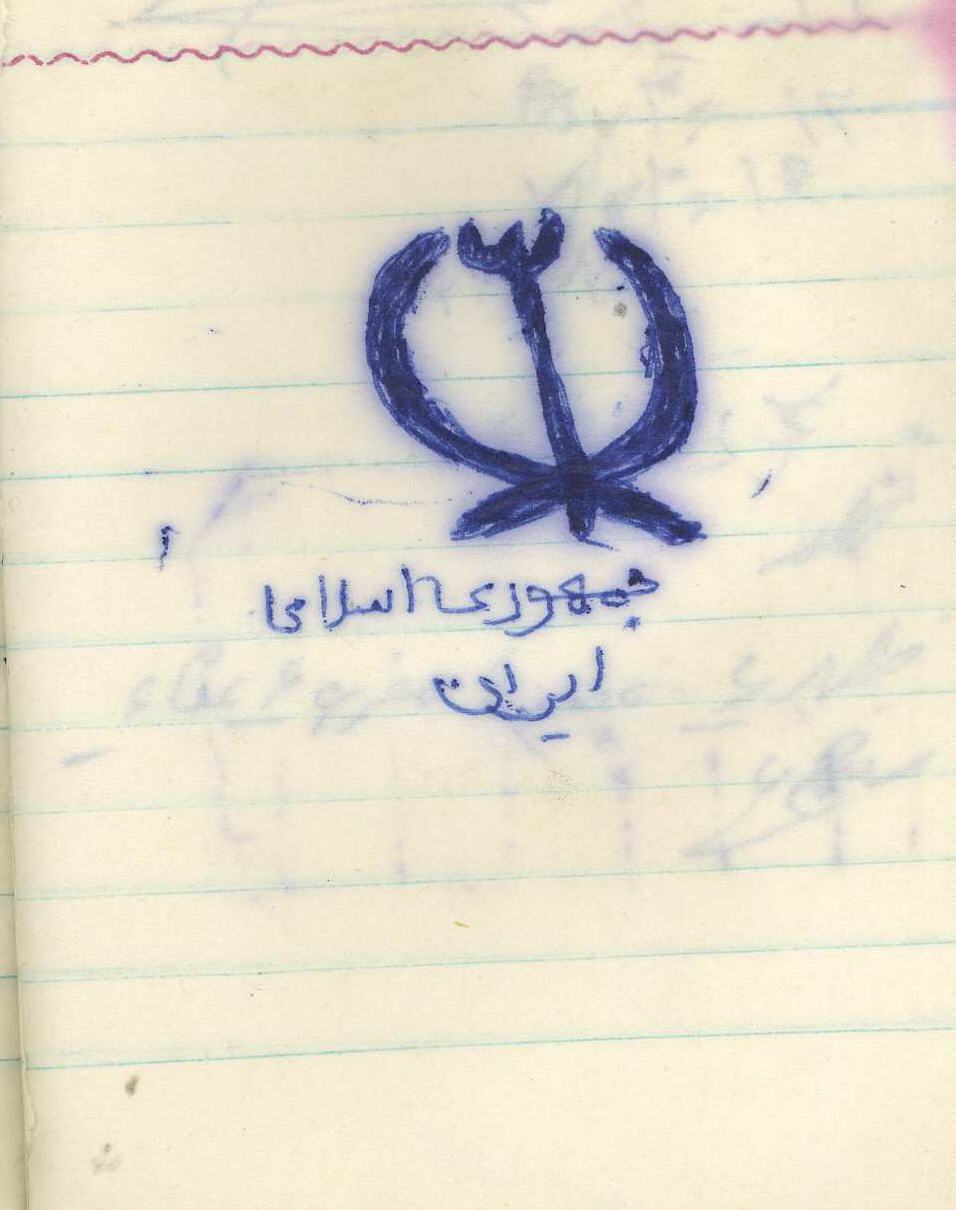 جمهوری اسلامی
ایران